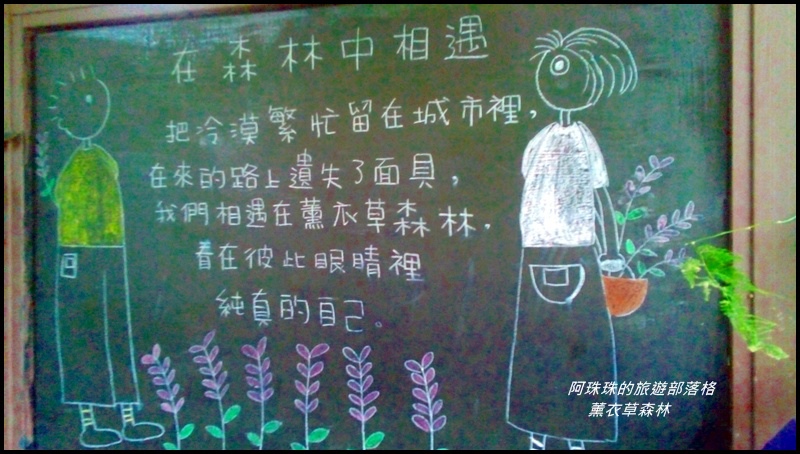 在森林中相遇
把冷漠繁忙留在城市裡，
在來的路上遺失了面具，
我們相遇在薰衣草森林，
看在彼此眼睛裡
純真的自己。
阿珠珠的旅遊部落格
薰衣草森林